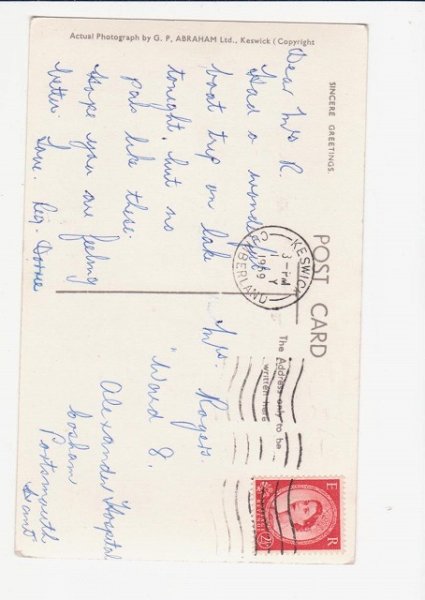 Actual Photograph by G. P. ABRAHAM Ltd., Keswick (Copyright
SINCERE GREETINGS.
POST CARD
The Address only to be
written here
Dear Mrs R.
Had a wonderful
boat trip on lake
tonight, but no
pals like these.
Hope you are feeling
better. Love. Reg. Dorrie
KESWICK
3-PM
1959
BERLAND
Mrs. Rogers.
Ward 8.
Alexander Hospital
Cosham
Portsmouth
Hants
E R
2½D